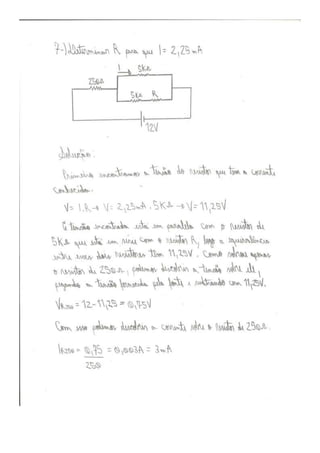 7-) Determinar R para que I = 2,25mA
I
5KΩ
250Ω
5KΩ R
12V
Solução:
Primeiro encontramos a tensão do resistor que tem a corrente
conhecida.
V= I.R → V= 2,25mA . 5KΩ → V= 11,25V
A tensão encontrada está em paralelo com o resistor de
5KΩ que está em série com o resistor R, logo a equivalência
entre esses dois resistores têm 11,25V. Como sobrou apenas
o resistor de 250Ω, podemos descobrir a tensão sobre ele,
pegando a tensão fornecida pela fonte e subtraindo com 11,25V.
VR250 = 12-11,25 = 0,75V
Com isso podemos descobrir a corrente sobre o resistor de 250Ω.
IR250 = 0,75 = 0,003A = 3mA
250